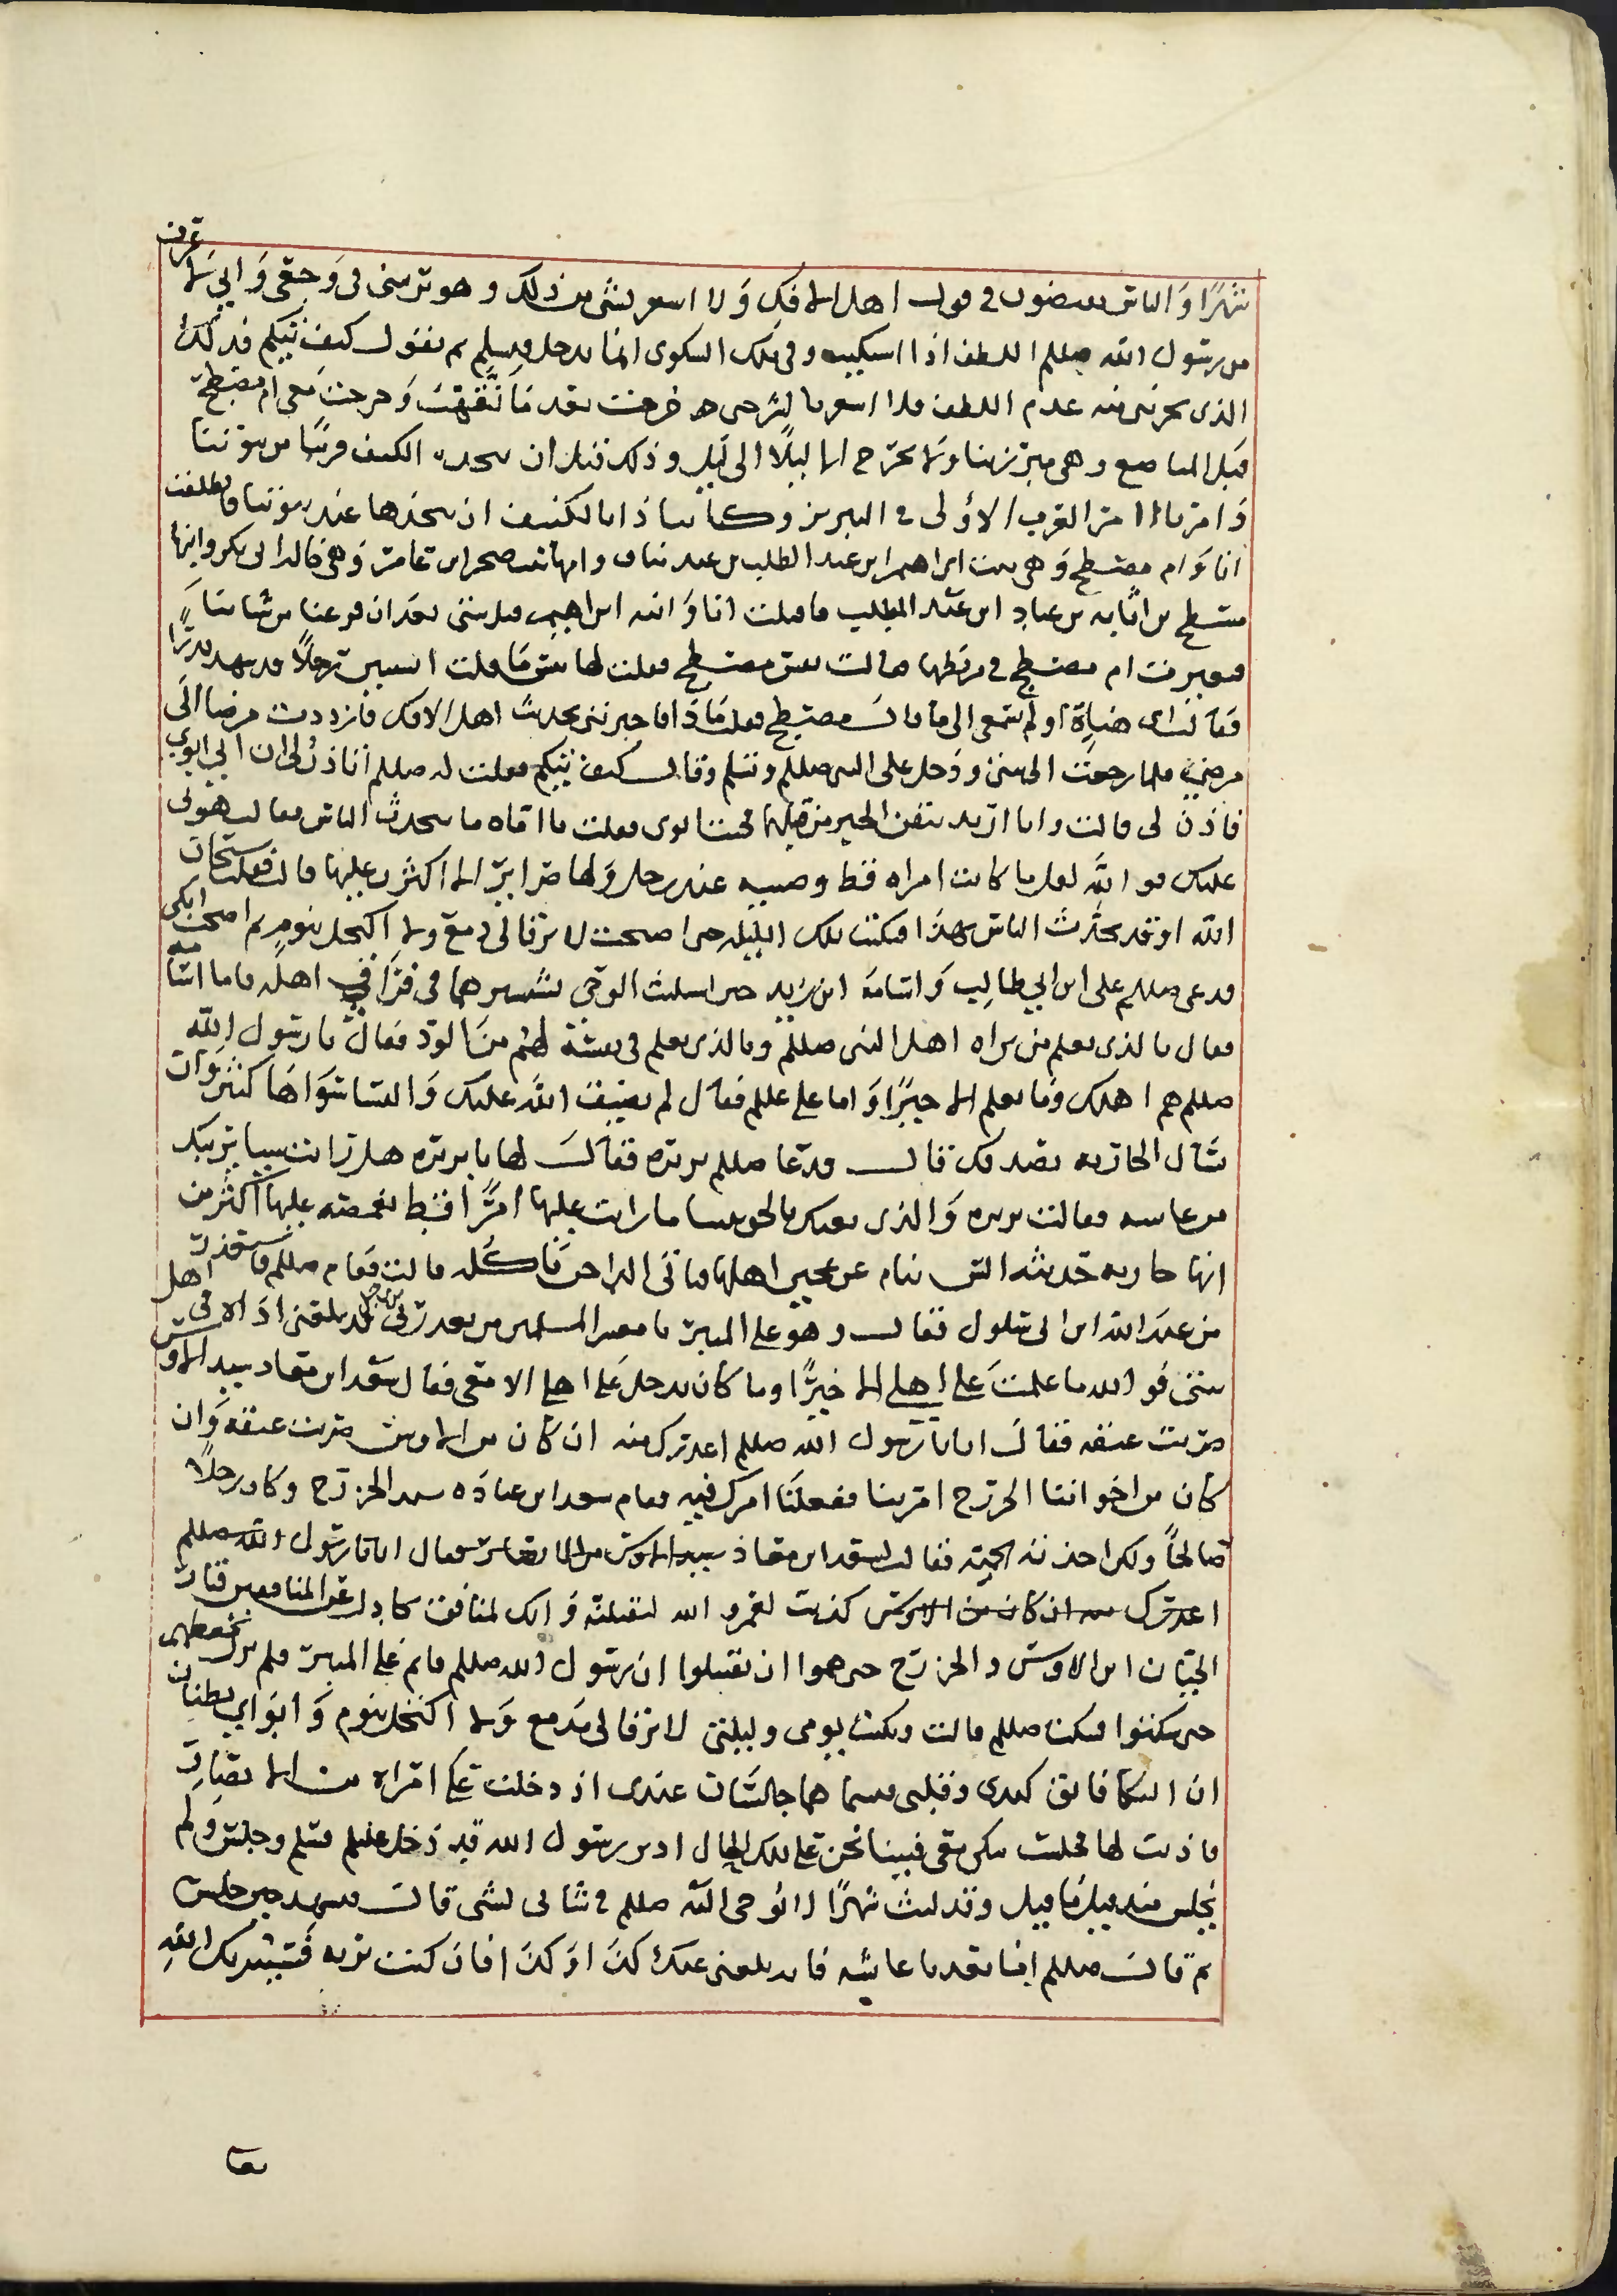 شهرًا وَالناس يفيضون في قول اهل الافك وَلا اشعر بشي من ذلك وهو يريبني في وَجعي وَاني لا اعرف
من رسول الله صللم اللطف اذا اشتكيت وفي تلك الشكوى انما يدخل فيسلم ثم يقول كيف تيكم فذلك
الذي يحزنني منه عدم اللطف ولا اشعر بالشر حتى خرجت بعد مَا نَقَهتُ وَخرجت معي ام مسطح
قبل المناصع وهي مبترزنا ولا نخرج الا ليلًا الى ليل وذلك قبل ان نتخذ الكنف قريبًا من بيوتنا
وَامرنا امر العرب الاوُلى في التبرز وكنا نتاذا بالكنيف ان نتخذها عند بيوتنا فانطلقت
انا وَام مسطح وَهي بنت ابراهيم ابن عبد المطلب بن عبد مناف وامها بنت صخر ابن عامر وَهي خالة ابي بكر وابنها
مسطح بن اثاثه بن عباد ابن عَبْد المطلب فاقبلت انا وَابنة ابراهيم قبل بيتي بعد ان فرغنا من شاننا
فعثرت ام مسطح في مرطها فقالت تعس مسطح فقلت لها بئس مَا قلت اتسبين رجلاً قد شهد بدرًا
فقالت اي هنتاه او لم تسمعي الى ما قالَ مسطح فقلت مَاذَا فاخبرتني بحديث اهل الافك فازددت مرضا الَى
مرضي فلما رجعت الى بيتي ودَخل على النبي صللم وسلم وقال كيف تيكم فقلت له صللم اتاذن لي ان اتي ابوي
فاذن لي قالت وانا اريد تيقن الخبر من قبلهما فجئت ابوي فقلت يا امّاه ما يتحدث الناس فقالت هوني
عليك فو اللّه لقل ما كانت امراه قط وضيه عند رجل وَلها ضراير الا اكثرن عليها قالت فقلت سبحان
الله اوقد تحدّث الناس بهذا فبكيت تلك الليله حتى اصبحت لا يرقا لي دمع ولا اكتحل بنوم ثم اصبحت ابكي
فدعى صللم على ابن ابي طالِب وَاسامه ابن زيد حين استلبث الوحي يستشيرهما في فراق اهله فاما اسامه
فقال بالذي يعلم من براه اهل النبي صللم وبالذي يعلم في نفسه لهم من الود فقال يا رسول الله
صللم هم اهلك وما نعلم الا خيرًا وَاما علي عللم فقال لم يضيق الله عليك وَالنسا سواها كثير وان
تسال الجاريه تصدقك قالت فدعا صللم بريره فقال لها يا بريره هل رايت شيا يريبك
من عايشه فقالت بريره وَالذي بعثك بالحق نبيا ما رايت عليها امرًا قط اغمصه عليها اكثر من
انها جاريه حديثه السن تنام عن عجين اهلها فتاتي الداجن فتاكله قالت فقام صللم فاستعذر
من عبد الله ابن ابي سلول فقال وهو على المنبر يا معشر المسلمين من يعذرني من رجل قد بلغني اذاه في اهل
بيتي فو الله ما علمت عَلى اهلي الا خيرًا وما كان يدخل عَلى اهلي الا معي فقال سعد ابن معاد سيد الاوس
ضربت عنقه فقال انا يا رسول الله صللم اعذرك منه ان كان من الاوس ضربت عنقه وَان
كان من اخواننا الخزرج امرتنا ففعلنا امرك فيه فقام سعد ابن عبادَه سيد الخزرج وكان رجلاً
صالحاً ولكن اخذته الحميّه فقال لسعد ابن معاذ سيد الاوس من الانصار فقال انا يا رسول الله صللم
اعذرك منه ان كان من الاوس كذبت لعَمرو الله لنقتلنه فَانك لمنافق تجادل عن المنافقين فثار
الحيان ابن الاوس والخزرج حتى هموا ان يقتتلوا ان رسول الله صللم قايم على المنبر فلم يزل يخفضهم
حتى سكتوا فسكت صللم قالت وبكيت يومي وليلتي لا يرقا لي دَمع وَلا اكتحل بنوم وَابواي يظنان
ان البكا فالق كبدي وقلبي فبينما هما جالسان عندي اذ دخلت عَلي امراه من الانصار
فاذنت لها فجلست تبكي معي فبينا نحن على تلك الحال اذ رسول الله قد دَخل عليهم فسلم وجلس ولم
يجلس منذ قيل مَا قيل وقد لبث شهرًا لا يُوحى اليه صللم في شاني لشي قالت فتشهد حين جلس
ثم قالَ صللم امّا بعد يا عايشه فانه بلغني عنك كذَا اوْ كذَا فانْ كنت بريه فَسَيبريك اللهِ
بما